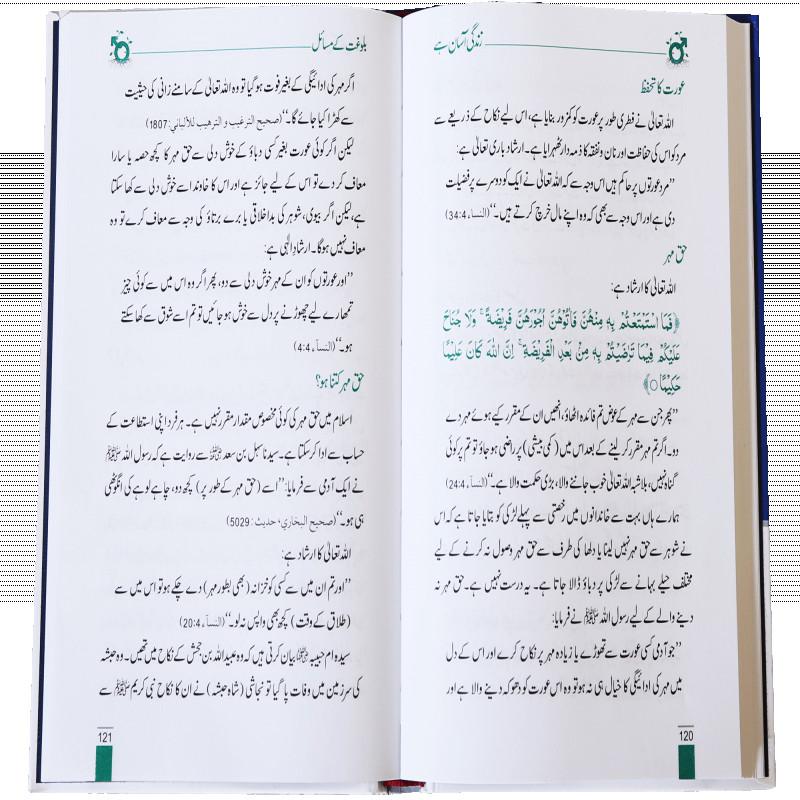 زندگی آسان ہے
عورت کا تحفظ
اللہ تعالیٰ نے فطری طور پر عورت کو کمزور بنایا ہے، اس لیے نکاح کے ذریعے سے
مرد کو اس کی حفاظت اور نان و نفقہ کا ذمہ دار ٹھہرایا ہے۔ ارشاد باری تعالیٰ ہے:
”مرد عورتوں پر حاکم ہیں اس وجہ سے کہ اللہ تعالیٰ نے ایک کو دوسرے پر فضیلت
دی ہے اور اس وجہ سے بھی کہ وہ اپنے مال خرچ کرتے ہیں۔“ (النسآء 34:4)
حق مہر
اللہ تعالیٰ کا ارشاد ہے:
﴿فَمَا اسْتَمْتَعْتُمْ بِهٖ مِنْهُنَّ فَاٰتُوْهُنَّ اُجُوْرَهُنَّ فَرِيْضَةً ۭ وَلَا جُنَاحَ
عَلَيْكُمْ فِيْمَا تَرٰضَيْتُمْ بِهٖ مِنْۢ بَعْدِ الْفَرِيْضَةِ ۭ اِنَّ اللّٰهَ كَانَ عَلِيْمًا
حَكِيْمًا ○﴾
”پھر جن سے مہر کے عوض تم فائدہ اٹھاؤ، انھیں ان کے مقرر کیے ہوئے مہر دے
دو۔ اگر تم مہر مقرر کر لینے کے بعد اس میں (کمی بیشی) پر راضی ہو جاؤ تو تم پر کوئی
گناہ نہیں، بلاشبہ اللہ تعالیٰ خوب جاننے والا، بڑی حکمت والا ہے۔“ (النسآء 24:4)
ہمارے ہاں بہت سے خاندانوں میں رخصتی سے پہلے لڑکی کو بتایا جاتا ہے کہ اس
نے شوہر سے حق مہر نہیں لینا یا دلھا کی طرف سے حق مہر وصول نہ کرنے کے لیے
مختلف حیلے بہانے سے لڑکی پر دباؤ ڈالا جاتا ہے۔ یہ درست نہیں ہے۔ حق مہر نہ
دینے والے کے لیے رسول اللہ ﷺ نے فرمایا:
”جو آدمی کسی عورت سے تھوڑے یا زیادہ مہر پر نکاح کرے اور اس کے دل
میں مہر کی ادائیگی کا خیال ہی نہ ہو تو وہ اس عورت کو دھوکہ دینے والا ہے اور
120
بلوغت کے مسائل
اگر مہر کی ادائیگی کے بغیر فوت ہو گیا تو وہ اللہ تعالیٰ کے سامنے زانی کی حیثیت
سے کھڑا کیا جائے گا۔“ (صحيح الترغيب و الترهيب للألباني: 1807)
لیکن اگر کوئی عورت بغیر کسی دباؤ کے خوش دلی سے حق مہر کا کچھ حصہ یا سارا
معاف کر دے تو اس کے لیے جائز ہے اور اس کا خاوند اسے خوش دلی سے کھا سکتا
ہے، لیکن اگر بیوی، شوہر کی بداخلاقی یا برے برتاؤ کی وجہ سے معاف کرے تو وہ
معاف نہیں ہوگا۔ ارشاد الٰہی ہے:
”اور عورتوں کو ان کے مہر خوش دلی سے دو، پھر اگر وہ اس میں سے کوئی چیز
تمھارے لیے چھوڑنے پر دل سے خوش ہو جائیں تو تم اسے شوق سے کھا سکتے
ہو۔“ (النسآء 4:4)
حق مہر کتنا ہو؟
اسلام میں حق مہر کی کوئی مخصوص مقدار مقرر نہیں ہے۔ ہر فرد اپنی استطاعت کے
حساب سے ادا کر سکتا ہے۔ سیدنا سہل بن سعد رضی اللہ عنہ سے روایت ہے کہ رسول اللہ ﷺ
نے ایک آدمی سے فرمایا: ”اسے (حق مہر کے طور پر) کچھ دو، چاہے لوہے کی انگوٹھی
ہی ہو۔“ (صحيح البخاري، حديث: 5029)
اللہ تعالیٰ کا ارشاد ہے:
”اور تم ان میں سے کسی کو خزانہ (بھی بطور مہر) دے چکے ہو تو اس میں سے
(طلاق کے وقت) کچھ بھی واپس نہ لو۔“ (النسآء 20:4)
سیدہ ام حبیبہ رضی اللہ عنہا بیان کرتی ہیں کہ وہ عبیداللہ بن جحش کے نکاح میں تھیں۔ وہ حبشہ
کی سرزمین میں وفات پا گیا تو نجاشی (شاہ حبشہ) نے ان کا نکاح نبی کریم ﷺ سے
121